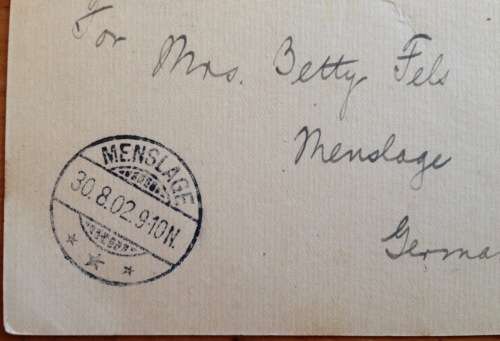 For
Mrs. Betty Fels
Menslage
Germa
MENSLAGE
30.8.02.9-10N.